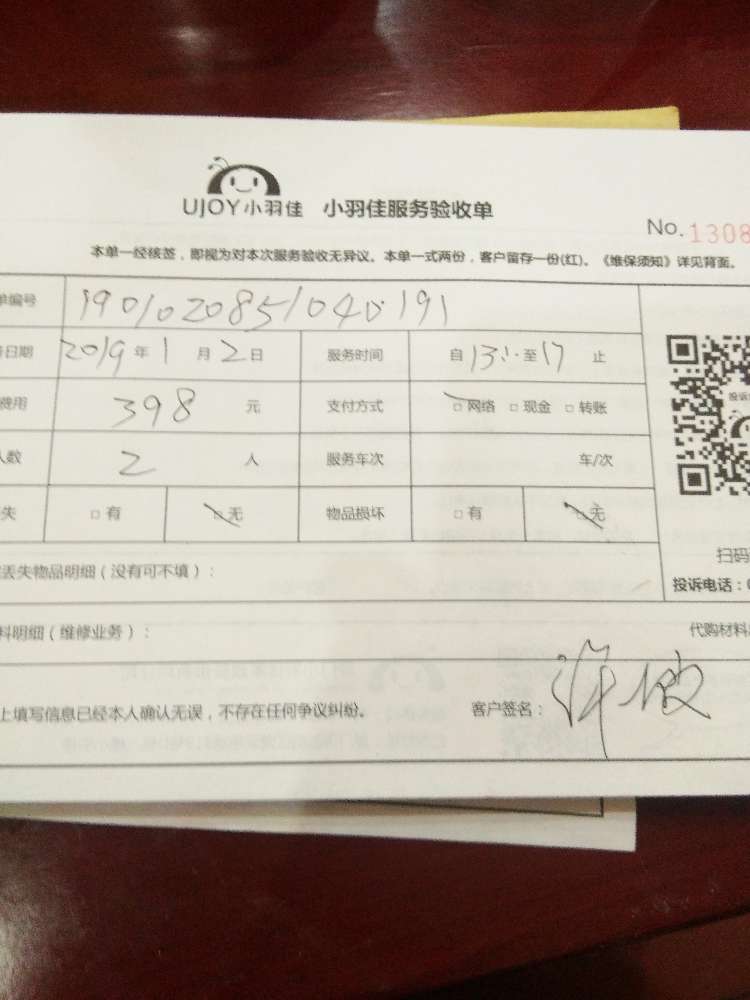 UJOY小羽佳 小羽佳服务验收单
No. 1308
本单一经核签，即视为对本次服务验收无异议。本单一式两份，客户留存一份(红)。《维保须知》详见背面。
单编号 1901020851040191
日期 2019年1月2日 服务时间 自13:至17止
费用 398元 支付方式 □网络 □现金 □转账
人数 2人 服务车次 车/次
失 □有 □无 物品损坏 □有 □无
投诉
扫码
丢失物品明细（没有可不填）：
投诉电话：0
料明细（维修业务）： 代购材料
上填写信息已经本人确认无误，不存在任何争议纠纷。 客户签名：许